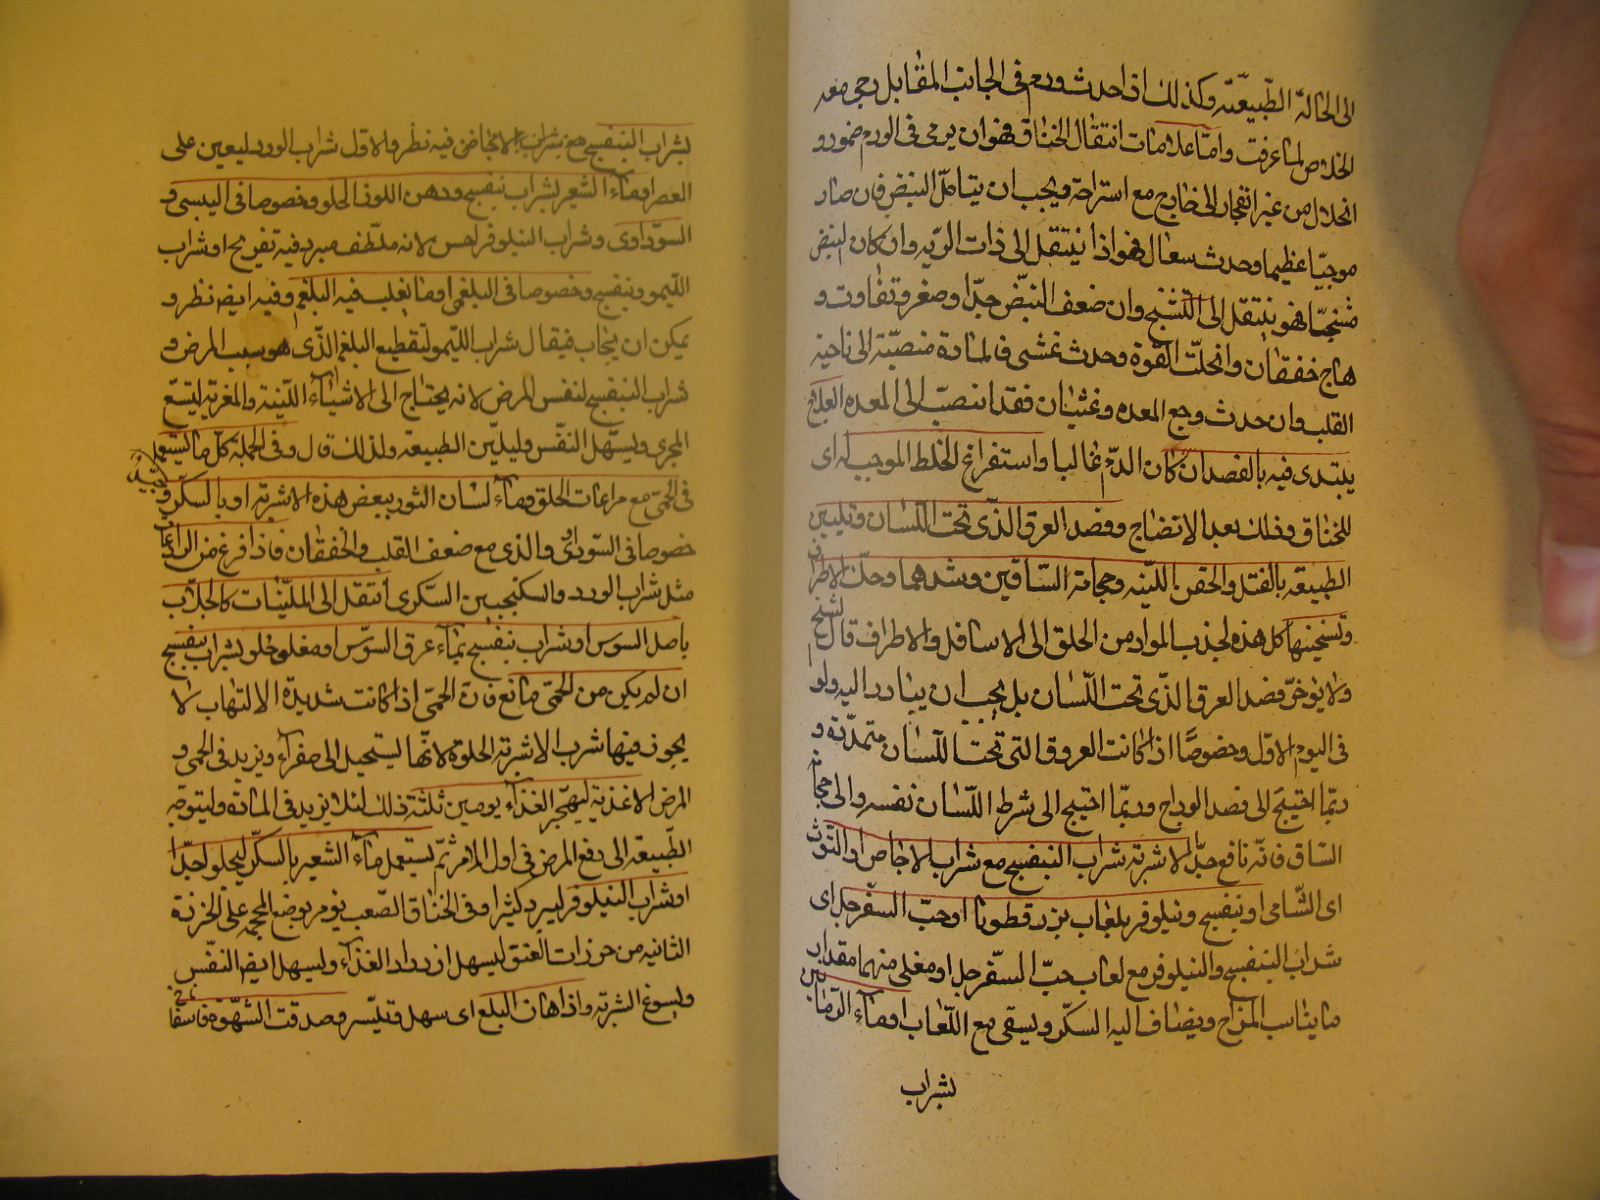 الى الحالة الطبيعته وكذلك اذا حدث ورم فى الجانب المقابل رجى معه
الخلاص لما عرفت وامّا علامات انتقال الخناق فهو ان يرى فى الورم ضمور و
انحلال من غير انفجار الى خارج مع استراحة ويجب ان يتامّل النبض فان صار
موجيّا عظيما وحدث سعال فهو اذا ينتقل الى ذات الريه وان كان النبض
متشنجيّا فهو ينتقل الى التشنج وان ضعف النبض جدّا وصغر وتفاوت و
هاج خفقان وانحلّت القوة وحدث غشى فالمادة منصبّة الى ناحية
القلب وان حدث وجع المعده وغثيان فقد انصبّ الى المعده العلاج
يبتدى فيه بالفصد ان كان الدم غالبا واستفراغ الخلط الموجب له اى
للخناق وذلك بعد الانضاج وفصد العرق الذى تحت اللسان وتليين
الطبيعه بالفتل والحقن اللينه وحجامة الساقين وشدهما وحكّ الاطراف
وتسخينها كل هذه لجذب المواد من الحلق الى الاسافل والاطراف قال الشيخ
ولا يؤخرّ فصد العرق الذى تحت اللسان بل يجب ان يبادر اليه ولو
فى اليوم الاوّل وخصوصًا اذا كانت العروق التى تحت اللسان متمدّدة و
ربّما احتيج الى فصد الوداج وربّما احتيج الى شرط اللسان نفسه والى حجامة
الساق فانّه نافع جدّا الاشربة شراب البنفسج مع شراب الاجاص او التوث
اى الشامى او بنفسج ونيلوفر بلعاب بزر قطونا او حبّ السفرجل اى
شراب البنفسج والنيلوفر مع لعاب حبّ السفرجل او مغلى منهما مقدار
ما يناسب المزاج ويضاف اليه السكر ويسقى مع اللعاب او ماء الرمّانين
بشراب
بشراب البنفسج مع شراب الاجاص فيه نظر والاول شراب الورد ليعين على
العصر او ماء الشعير بشراب بنفسج ودهن اللوز الحلو وخصوصا فى اليبسى و
السوداوى وشراب النيلوفر لانه ملطف مبرد فيه تفريح او شراب
الليمو وبنفسج وخصوصا فى البلغمى او ما يغلب فيه البلغم وفيه ايض نظر و
يمكن ان يجاب فيقال شراب الليمو لتقطيع البلغم الذى هو سبب المرض و
شراب البنفسج لنفس المرض لانه يحتاج الى الاشياء اللينة والمغرية ليتسع
المجرى ويسهل النفس وليلين الطبيعه ولذلك قال وفى الجملة كل ما يستعمل
فى الحمّى مع مراعات الحلق وماء لسان الثور ببعض هذه الاشربة او بالسكر وحده
خصوصا فى السوداوى والذى مع ضعف القلب والخفقان فاذا فرغ من الرادعات
مثل شراب الورد والسكنجبين السكرى انتقل الى الملينات كالجلاب
باصل السوس او شراب بنفسج بماء عرق السوس او مغلى حلو بشراب بنفسج
ان لم يكن من الحمّى مانع فان الحمّى اذا كانت شديدة الالتهاب لا
يجوز فيها شرب الاشربة الحلوة لانها تستحيل الى صفراء ويزيد فى الحمى و
المرض الاغذية ليهجر الغذاء يومين ثلثة ذلك لئلا يزيد فى المادة وليتوجه
الطبيعه الى دفع المرض فى اول الامر ثم يستعمل ماء الشعير بالسكر ليجلو جدّا
او شراب النيلوفر ليبرد كثيرا وفى الخناق الصعب يؤمر بوضع المحجمه على الخرزة
الثانيه من خرزات العنق ليسهل ازدراد الغذاء وليسهل ايض النفس
وليسوغ الشربة واذا هان البلع اى سهل وتيسر وصدقت الشهوة